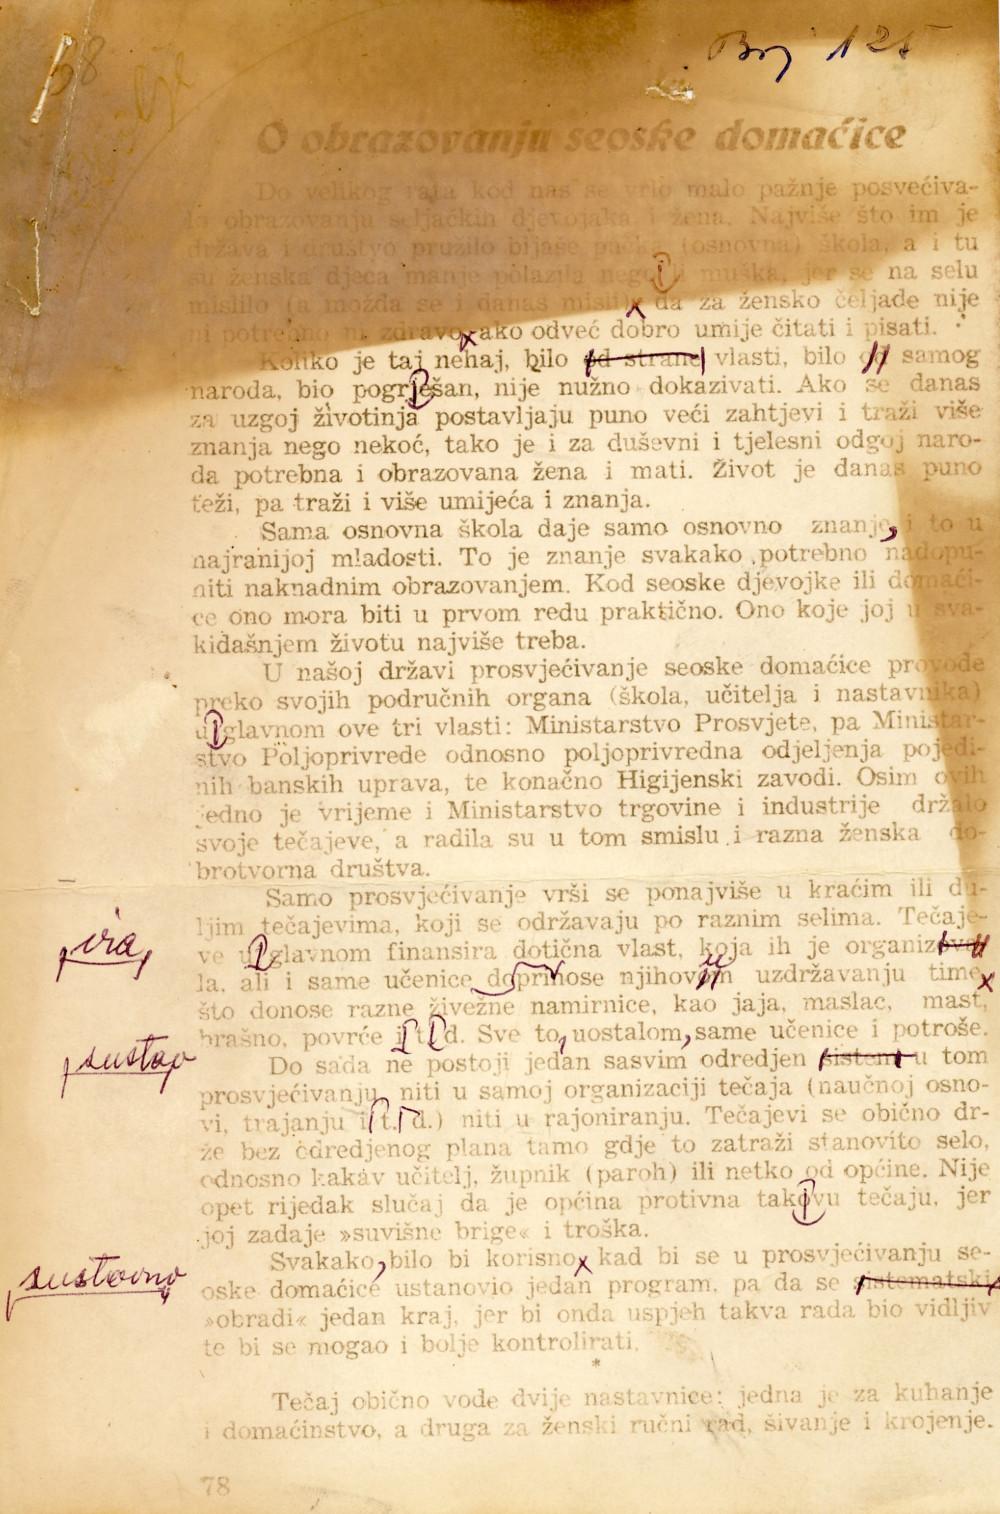 68
Broj 125
O obrazovanju seoske domaćice
Do velikog rata kod nas se vrlo malo pažnje posvećiva-
lo obrazovanju seljačkih djevojaka i žena. Najviše što im je
država i društvo pružilo bijaše pučka (osnovna) škola, a i tu
su ženska djeca manje polazila nego li muška, jer se na selu
mislilo (a možda se i danas misli), da za žensko čeljade nije
ni potrebno ni zdravo, ako odveć dobro umije čitati i pisati.
Koliko je taj nehaj, bilo od strane vlasti, bilo od samog
naroda, bio pogrješan, nije nužno dokazivati. Ako se danas
za uzgoj životinja postavljaju puno veći zahtjevi i traži više
znanja nego nekoć, tako je i za duševni i tjelesni odgoj naro-
da potrebna i obrazovana žena i mati. Život je danas puno
teži, pa traži i više umijeća i znanja.
Sama osnovna škola daje samo osnovno znanje, i to u
najranijoj mladosti. To je znanje svakako potrebno nadopu-
niti naknadnim obrazovanjem. Kod seoske djevojke ili domaći-
ce ono mora biti u prvom redu praktično. Ono koje joj u sva-
kidašnjem životu najviše treba.
U našoj državi prosvjećivanje seoske domaćice provode
preko svojih područnih organa (škola, učitelja i nastavnika)
uglavnom ove tri vlasti: Ministarstvo Prosvjete, pa Ministar-
stvo Poljoprivrede odnosno poljoprivredna odjeljenja pojedi-
nih banskih uprava, te konačno Higijenski zavodi. Osim ovih
jedno je vrijeme i Ministarstvo trgovine i industrije držalo
svoje tečajeve, a radila su u tom smislu i razna ženska do-
brotvorna društva.
Samo prosvjećivanje vrši se ponajviše u kraćim ili du-
ljim tečajevima, koji se održavaju po raznim selima. Tečaje-
ira
ve uglavnom finansira dotična vlast, koja ih je organizova-
la, ali i same učenice doprinose njihovom uzdržavanju time,
što donose razne živežne namirnice, kao jaja, maslac, mast,
brašno, povrće i t. d. Sve to, uostalom, same učenice i potroše.
sustav
Do sada ne postoji jedan sasvim odredjen sistem u tom
prosvjećivanju, niti u samoj organizaciji tečaja (naučnoj osno-
vi, trajanju i t. d.) niti u rajoniranju. Tečajevi se obično dr-
že bez odredjenog plana tamo gdje to zatraži stanovito selo,
odnosno kakav učitelj, župnik (paroh) ili netko od općine. Nije
opet rijedak slučaj da je općina protivna takovu tečaju, jer
joj zadaje »suvišne brige« i troška.
Svakako, bilo bi korisno, kad bi se u prosvjećivanju se-
sustavno
oske domaćice ustanovio jedan program, pa da se sistematski
»obradi« jedan kraj, jer bi onda uspjeh takva rada bio vidljiv
te bi se mogao i bolje kontrolirati.
*
Tečaj obično vode dvije nastavnice: jedna je za kuhanje
i domaćinstvo, a druga za ženski ručni rad, šivanje i krojenje.
78